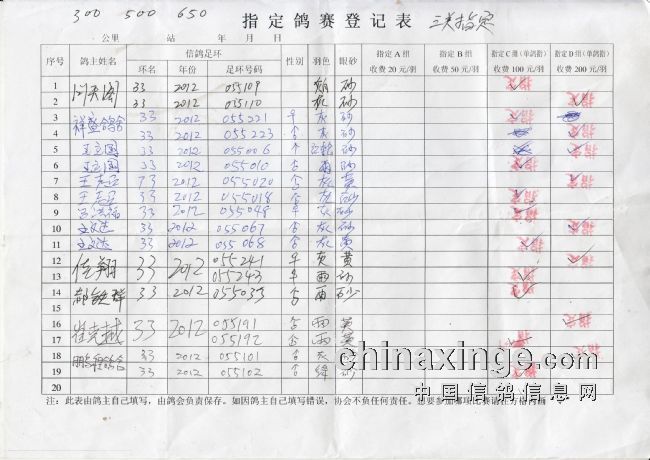 300 500 650
指定鸽赛登记表 三关指定
公里 站 年 月 日
序号 鸽主姓名 信鸽足环 性别 羽色 眼砂 指定A组 指定B组 指定C组(单鸽指) 指定D组(单鸽指)
环名 年份 足环号码 收费20元/羽 收费50元/羽 收费100元/羽 收费200元/羽
1 闫天阁 33 2012 055109 砂 指定
2 33 2012 055110 灰 砂 指定
3 祥盛鸽舍 33 2012 055221 灰 砂 指定
4 祥盛鸽舍 33 2012 055223 灰 砂 指定
5 王立国 33 2012 055006 砂 指定 指定
6 王立国 33 2012 055010 雨 砂 指定
7 33 2012 055020 灰 黄 指定
8 33 2012 055018 灰 砂 指定
9 吕洪福 33 2012 055048 灰 砂 指定
10 33 2012 055067 灰 砂 指定
11 33 2012 055068 灰 黄 指定
12 佳翔 33 2012 055241 灰 黄 指定
13 055243 雨 砂 指定
14 33 2012 055033 雨 砂 指定
15
16 崔克越 33 2012 055191 雨 黄 指定
17 055192 雨 黄 指定
18 33 2012 055101 灰 指定
19 33 2012 055102 绛 砂 指定
20
chinaxinge.com
中国信鸽信息网
注：此表由鸽主自己填写，由鸽会负责保存。如因鸽主自己填写错误，协会不负任何责任。想要参加哪项比赛请在方格内画